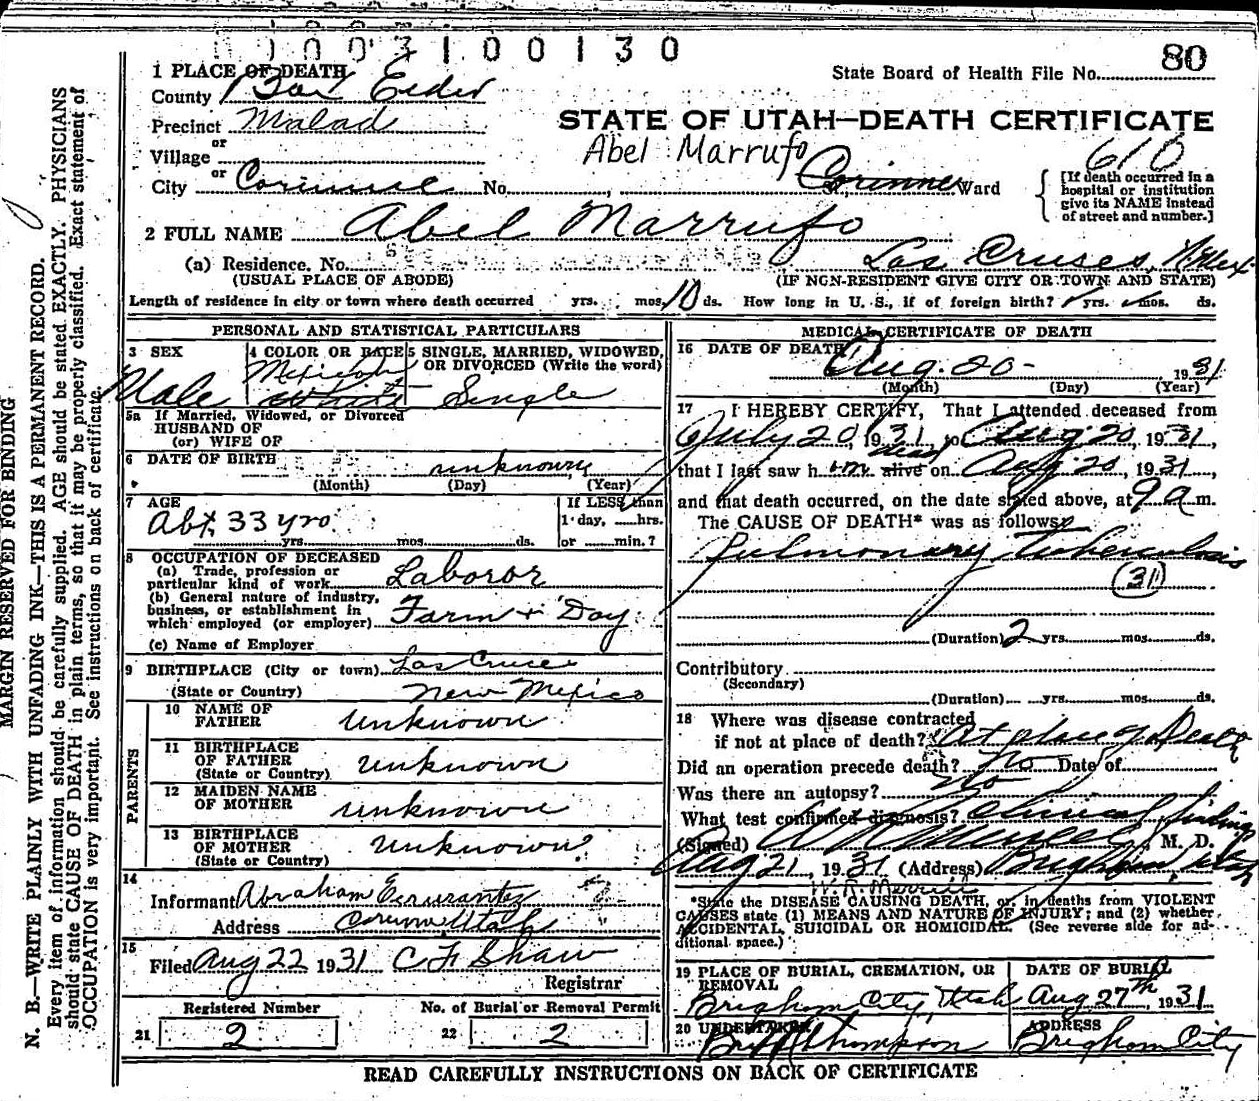 1003100130
80
1 PLACE OF DEATH
State Board of Health File No.
County Box Elder
STATE OF UTAH—DEATH CERTIFICATE
Precinct Malad
Abel Marrufo
610
or
Village
or
City Corinne No. St., Corinne Ward
[If death occurred in a
hospital or institution
give its NAME instead
of street and number.]
2 FULL NAME Abel Marrufo
(a) Residence. No. Las Cruses, N. Mex
(USUAL PLACE OF ABODE) (IF NON-RESIDENT GIVE CITY OR TOWN AND STATE)
Length of residence in city or town where death occurred yrs. mos. 10 ds. How long in U. S., if of foreign birth? yrs. mos. ds.
PERSONAL AND STATISTICAL PARTICULARS
3 SEX
Male
4 COLOR OR RACE
Mexican
White
5 SINGLE, MARRIED, WIDOWED,
OR DIVORCED (Write the word)
Single
5a If Married, Widowed, or Divorced
HUSBAND OF
(or) WIFE OF
6 DATE OF BIRTH unknown
(Month) (Day) (Year)
7 AGE
Abt. 33 yrs.
yrs. mos. ds.
If LESS than
1 day, hrs.
or min.?
8 OCCUPATION OF DECEASED
(a) Trade, profession or
particular kind of work Laboror
(b) General nature of industry,
business, or establishment in
which employed (or employer) Farm + Day
(c) Name of Employer
9 BIRTHPLACE (City or town) Las Cruces
(State or Country) New Mexico
PARENTS
10 NAME OF
FATHER unknown
11 BIRTHPLACE
OF FATHER
(State or Country) unknown
12 MAIDEN NAME
OF MOTHER unknown
13 BIRTHPLACE
OF MOTHER
(State or Country) unknown
14
Informant Abraham
Address Corinne Utah
15
Filed Aug 22 1931 C F Shaw
Registrar
Registered Number No. of Burial or Removal Permit
21 2 22 2
MEDICAL CERTIFICATE OF DEATH
16 DATE OF DEATH
Aug. 20 - 1931
(Month) (Day) (Year)
17 I HEREBY CERTIFY, That I attended deceased from
July 20, 1931, to Aug 20, 1931,
dead
that I last saw him alive on Aug 20, 1931,
and that death occurred, on the date stated above, at 9 a m.
The CAUSE OF DEATH* was as follows:
Pulmonary Tuberculosis
31
(Duration) 2 yrs. mos. ds.
Contributory
(Secondary)
(Duration) yrs. mos. ds.
18 Where was disease contracted
if not at place of death? At place of Death
Did an operation precede death? No Date of
Was there an autopsy? No
What test confirmed diagnosis? Clinical finding
(Signed) W R Merrill, M. D.
Aug 21, 1931 (Address) Brigham, Utah
W. R. Merrill
*State the DISEASE CAUSING DEATH, or, in deaths from VIOLENT
CAUSES state (1) MEANS AND NATURE OF INJURY; and (2) whether
ACCIDENTAL, SUICIDAL OR HOMICIDAL. (See reverse side for ad-
ditional space.)
19 PLACE OF BURIAL, CREMATION, OR
REMOVAL
Brigham City, Utah
DATE OF BURIAL
Aug 27th, 1931
20 UNDERTAKER
Thompson
ADDRESS
Brigham City
READ CAREFULLY INSTRUCTIONS ON BACK OF CERTIFICATE
MARGIN RESERVED FOR BINDING
N. B.—WRITE PLAINLY WITH UNFADING INK—THIS IS A PERMANENT RECORD.
Every item of information should be carefully supplied. AGE should be stated EXACTLY. PHYSICIANS
should state CAUSE OF DEATH in plain terms, so that it may be properly classified. Exact statement of
OCCUPATION is very important. See instructions on back of certificate.